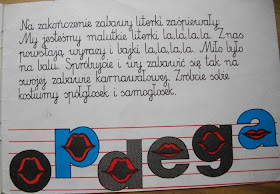 Na zakończenie zabawy literki zaśpiewały:
My jesteśmy malutkie literki la, la, la, la. Z nas
powstają wyrazy i bajki la, la, la, la. Miło było
na balu. Spróbujcie i wy zabawić się tak na
swojej zabawie karnawałowej. Zróbcie sobie
kostiumy spółgłosek i samogłosek.
o p a e g a